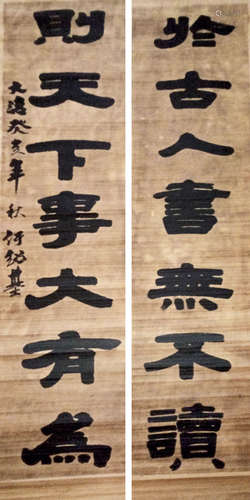 於古人書無不讀
則天下事大有為
大濤癸亥年秋何紹基